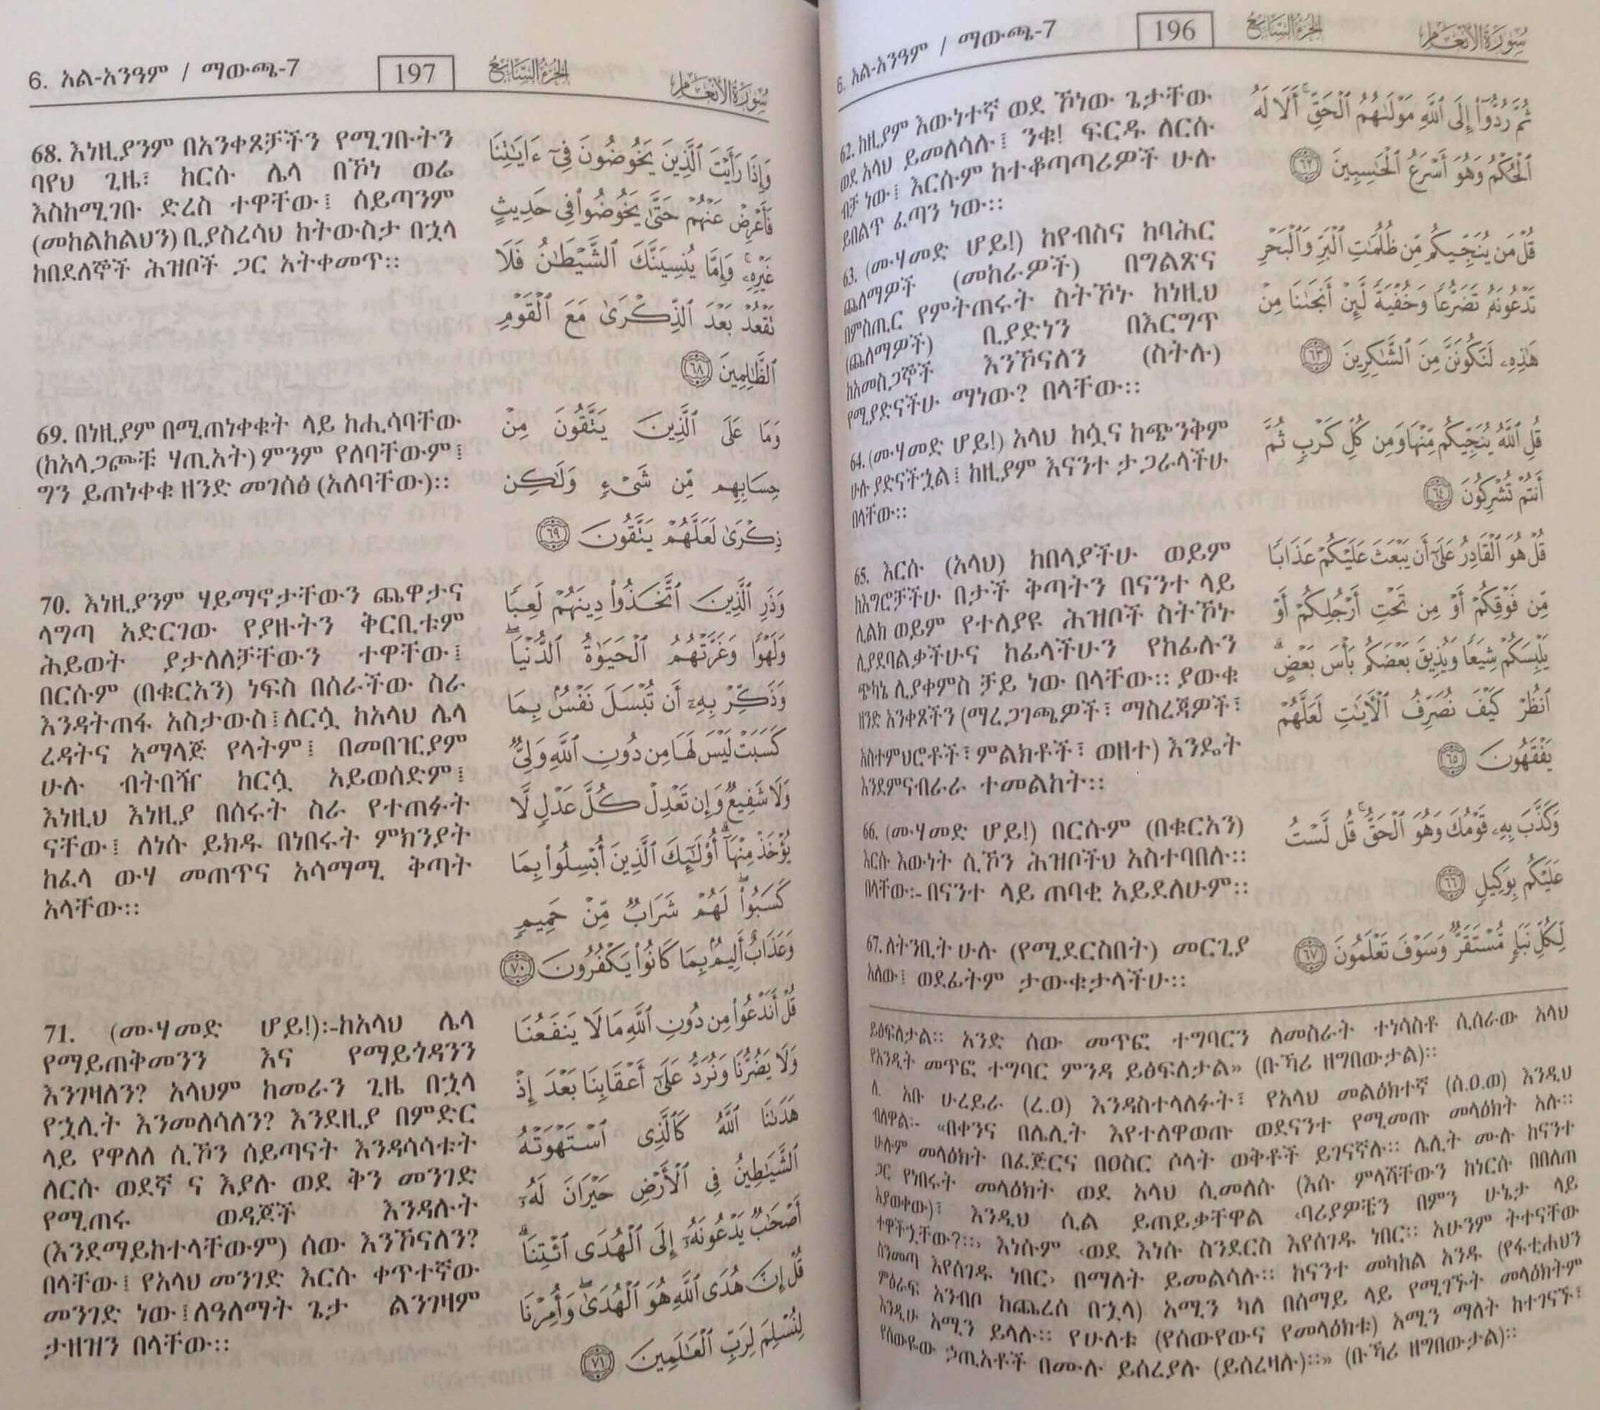 6. አል-አንዓም / ማውጫ-7
196
الجزء السابع
سورة الأنعام
62. ከዚያም እውነተኛ ወደ ኾነው ጌታቸው
ወደ አላህ ይመለሳሉ፤ ንቁ! ፍርዱ ለርሱ
ብቻ ነው፤ እርሱም ከተቆጣጣሪዎች ሁሉ
ይበልጥ ፈጣን ነው።
63. (ሙሃመድ ሆይ!) ከየብስና ከባሕር
ጨለማዎች (መከራዎች) በግልጽና
በምስጢር የምትጠሩት ስትኾኑ ከነዚህ
(ጨለማዎች) ቢያድነን በእርግጥ
ከአመስጋኞች እንኾናለን (ስትሉ)
የሚያድናችሁ ማነው? በላቸው።
64. (ሙሃመድ ሆይ!) አላህ ከሷና ከጭንቅም
ሁሉ ያድናችኋል፤ ከዚያም እናንተ ታጋራላችሁ
በላቸው።
65. እርሱ (አላህ) ከበላያችሁ ወይም
ከእግሮቻችሁ በታች ቅጣትን በናንተ ላይ
ሊልክ ወይም የተለያዩ ሕዝቦች ስትኾኑ
ሊያደባልቃችሁና ከፊላችሁን የከፊሉን
ጭካኔ ሊያቀምስ ቻይ ነው በላቸው። ያውቁ
ዘንድ አንቀጾችን (ማረጋገጫዎች፣ ማስረጃዎች፣
አስተምህሮቶች፣ ምልክቶች፣ ወዘተ) እንዴት
እንደምናብራራ ተመልከት።
66. (ሙሃመድ ሆይ!) በርሱም (በቁርአን)
እርሱ እውነት ሲኾን ሕዝቦችህ አስተባበሉ።
በላቸው፡- በናንተ ላይ ጠባቂ አይደለሁም።
67. ለትንቢት ሁሉ (የሚደርስበት) መርጊያ
አለው፤ ወደፊትም ታውቁታላችሁ።
ثُمَّ رُدُّوٓا۟ إِلَى ٱللَّهِ مَوْلَىٰهُمُ ٱلْحَقِّ ۚ أَلَا لَهُ
ٱلْحُكْمُ وَهُوَ أَسْرَعُ ٱلْحَـٰسِبِينَ ٦٢
قُلْ مَن يُنَجِّيكُم مِّن ظُلُمَـٰتِ ٱلْبَرِّ وَٱلْبَحْرِ
تَدْعُونَهُۥ تَضَرُّعًا وَخُفْيَةً لَّئِنْ أَنجَىٰنَا مِنْ
هَـٰذِهِۦ لَنَكُونَنَّ مِنَ ٱلشَّـٰكِرِينَ ٦٣
قُلِ ٱللَّهُ يُنَجِّيكُم مِّنْهَا وَمِن كُلِّ كَرْبٍ ثُمَّ
أَنتُمْ تُشْرِكُونَ ٦٤
قُلْ هُوَ ٱلْقَادِرُ عَلَىٰٓ أَن يَبْعَثَ عَلَيْكُمْ عَذَابًا
مِّن فَوْقِكُمْ أَوْ مِن تَحْتِ أَرْجُلِكُمْ أَوْ
يَلْبِسَكُمْ شِيَعًا وَيُذِيقَ بَعْضَكُم بَأْسَ بَعْضٍ ۗ
ٱنظُرْ كَيْفَ نُصَرِّفُ ٱلْـَٔايَـٰتِ لَعَلَّهُمْ
يَفْقَهُونَ ٦٥
وَكَذَّبَ بِهِۦ قَوْمُكَ وَهُوَ ٱلْحَقُّ ۚ قُل لَّسْتُ
عَلَيْكُم بِوَكِيلٍ ٦٦
لِّكُلِّ نَبَإٍ مُّسْتَقَرٌّ ۚ وَسَوْفَ تَعْلَمُونَ ٦٧
ይፅፍለታል። አንድ ሰው መጥፎ ተግባርን ለመስራት ተነሳስቶ ሲሰራው አላህ
የአንዲት መጥፎ ተግባር ምንዳ ይፅፍለታል» (ቡኻሪ ዘግበውታል)።
ለ. አቡ ሁረይራ (ረ.ዐ) እንዳስተላለፉት፣ የአላህ መልዕክተኛ (ሰ.ዐ.ወ) እንዲህ
ብለዋል፡- «በቀንና በሌሊት እየተለዋወጡ ወደናንተ የሚመጡ መላዕክት አሉ።
ሁሉም መላዕክት በፈጅርና በዐስር ሶላት ወቅቶች ይገናኛሉ። ሌሊት ሙሉ ከናንተ
ጋር የነበሩት መላዕክት ወደ አላህ ሲመለሱ (እሱ ምላሻቸውን ከነርሱ በበለጠ
እያወቀው)፣ እንዲህ ሲል ይጠይቃቸዋል ‹ባሪያዎቼን በምን ሁኔታ ላይ
ተዋችኋቸው?።› እነሱም ‹ወደ እነሱ ስንደርስ እየሰገዱ ነበር። አሁንም ትተናቸው
ስንመጣ እየሰገዱ ነበር› በማለት ይመልሳሉ። ከናንተ መካከል አንዱ (የፋቲሐህን
ምዕራፍ አንብቦ ከጨረሰ በኋላ) አሚን ካለ በሰማይ ላይ የሚገኙት መላዕክትም
እንዲሁ አሚን ይላሉ። የሁለቱ (የሰውየውና የመላዕክቱ) አሚን ማለት ከተገናኙ፣
የሰውዬው ኃጢአቶች በሙሉ ይሰረያሉ (ይሰረዛሉ)።» (ቡኻሪ ዘግበውታል)።
6. አል-አንዓም / ማውጫ-7
197
الجزء السابع
سورة الأنعام
68. እነዚያንም በአንቀጾቻችን የሚገቡትን
ባየህ ጊዜ፣ ከርሱ ሌላ በኾነ ወሬ
እስከሚገቡ ድረስ ተዋቸው፤ ሰይጣንም
(መከልከልህን) ቢያስረሳህ ከትውስታ በኋላ
ከበደለኞች ሕዝቦች ጋር አትቀመጥ።
69. በነዚያም በሚጠነቀቁት ላይ ከሒሳባቸው
(ከአላጋጮቹ ሃጢአት) ምንም የለባቸውም፤
ግን ይጠነቀቁ ዘንድ መገሰፅ (አለባቸው)።
70. እነዚያንም ሃይማኖታቸውን ጨዋታና
ላግጣ አድርገው የያዙትን ቅርቢቱም
ሕይወት ያታለለቻቸውን ተዋቸው፤
በርሱም (በቁርአን) ነፍስ በሰራችው ስራ
እንዳትጠፋ አስታውስ፤ለርሷ ከአላህ ሌላ
ረዳትና አማላጅ የላትም፤ በመበገርያም
ሁሉ ብትበዥ ከርሷ አይወሰድም፤
እነዚህ እነዚያ በሰሩት ስራ የተጠፉት
ናቸው፤ ለነሱ ይክዱ በነበሩት ምክንያት
ከፈላ ውሃ መጠጥና አሳማሚ ቅጣት
አላቸው።
71. (ሙሃመድ ሆይ!)፡-ከአላህ ሌላ
የማይጠቅመንን እና የማይጎዳንን
እንገዛለን? አላህም ከመራን ጊዜ በኋላ
የኋሊት እንመለሳለን? እንደዚያ በምድር
ላይ የዋለለ ሲኾን ሰይጣናት እንዳሳሳቱት
ለርሱ ወደኛ ና እያሉ ወደ ቅን መንገድ
የሚጠሩ ወዳጆች እንዳሉት
(እንደማይከተላቸውም) ሰው እንኾናለን?
በላቸው፤ የአላህ መንገድ እርሱ ቀጥተኛው
መንገድ ነው፤ለዓለማት ጌታ ልንገዛም
ታዘዝን በላቸው።
وَإِذَا رَأَيْتَ ٱلَّذِينَ يَخُوضُونَ فِىٓ ءَايَـٰتِنَا
فَأَعْرِضْ عَنْهُمْ حَتَّىٰ يَخُوضُوا۟ فِى حَدِيثٍ
غَيْرِهِۦ ۚ وَإِمَّا يُنسِيَنَّكَ ٱلشَّيْطَـٰنُ فَلَا
تَقْعُدْ بَعْدَ ٱلذِّكْرَىٰ مَعَ ٱلْقَوْمِ
ٱلظَّـٰلِمِينَ ٦٨
وَمَا عَلَى ٱلَّذِينَ يَتَّقُونَ مِنْ
حِسَابِهِم مِّن شَىْءٍ وَلَـٰكِن
ذِكْرَىٰ لَعَلَّهُمْ يَتَّقُونَ ٦٩
وَذَرِ ٱلَّذِينَ ٱتَّخَذُوا۟ دِينَهُمْ لَعِبًا
وَلَهْوًا وَغَرَّتْهُمُ ٱلْحَيَوٰةُ ٱلدُّنْيَا ۚ
وَذَكِّرْ بِهِۦٓ أَن تُبْسَلَ نَفْسٌۢ بِمَا
كَسَبَتْ لَيْسَ لَهَا مِن دُونِ ٱللَّهِ وَلِىٌّ
وَلَا شَفِيعٌ وَإِن تَعْدِلْ كُلَّ عَدْلٍ لَّا
يُؤْخَذْ مِنْهَآ ۗ أُو۟لَـٰٓئِكَ ٱلَّذِينَ أُبْسِلُوا۟ بِمَا
كَسَبُوا۟ ۖ لَهُمْ شَرَابٌ مِّنْ حَمِيمٍ
وَعَذَابٌ أَلِيمٌۢ بِمَا كَانُوا۟ يَكْفُرُونَ ٧٠
قُلْ أَنَدْعُوا۟ مِن دُونِ ٱللَّهِ مَا لَا يَنفَعُنَا
وَلَا يَضُرُّنَا وَنُرَدُّ عَلَىٰٓ أَعْقَابِنَا بَعْدَ إِذْ
هَدَىٰنَا ٱللَّهُ كَٱلَّذِى ٱسْتَهْوَتْهُ
ٱلشَّيَـٰطِينُ فِى ٱلْأَرْضِ حَيْرَانَ لَهُۥٓ
أَصْحَـٰبٌ يَدْعُونَهُۥٓ إِلَى ٱلْهُدَى ٱئْتِنَا ۗ
قُلْ إِنَّ هُدَى ٱللَّهِ هُوَ ٱلْهُدَىٰ ۖ وَأُمِرْنَا
لِنُسْلِمَ لِرَبِّ ٱلْعَـٰلَمِينَ ٧١